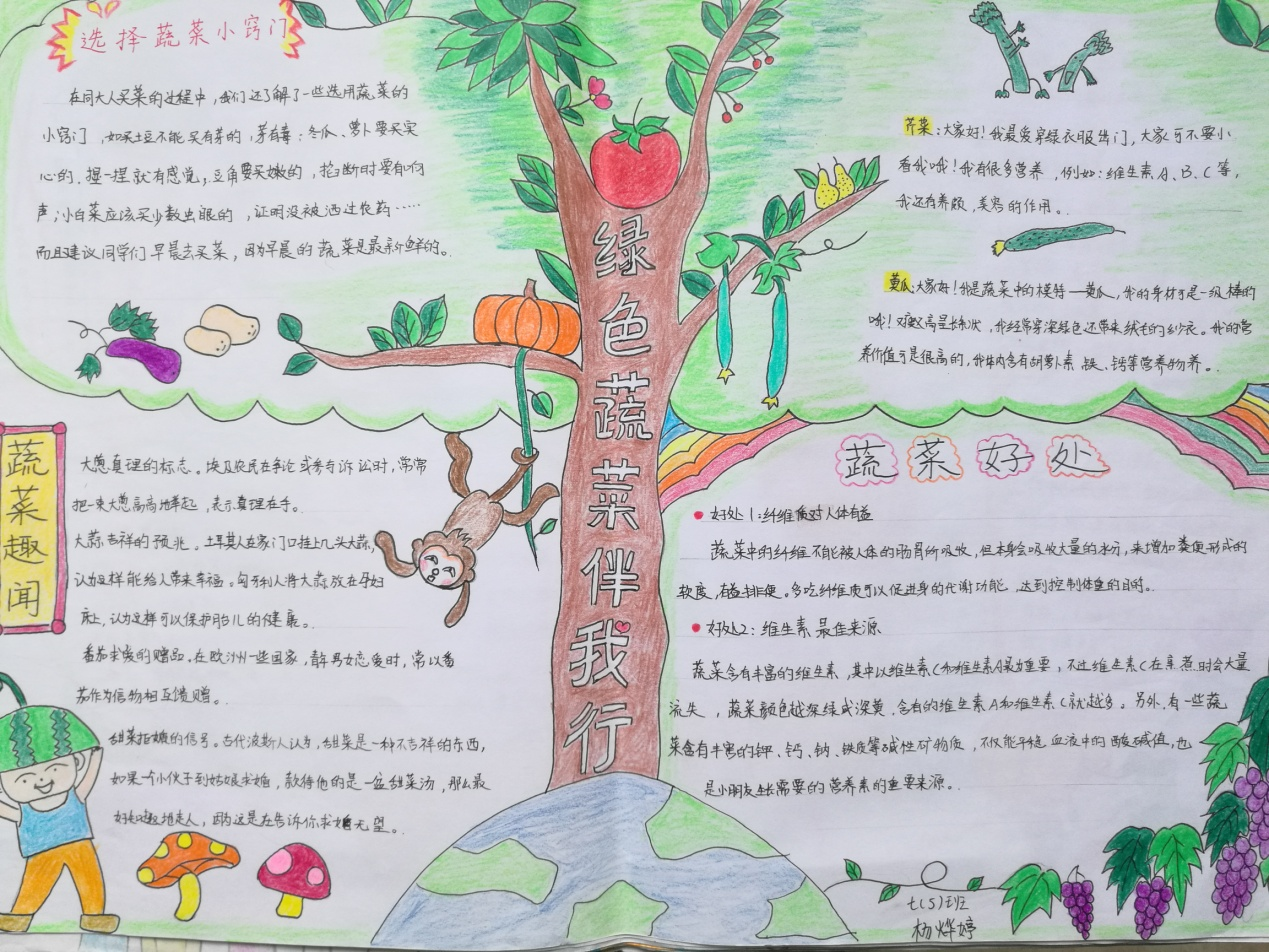 选择蔬菜小窍门
在同大人买菜的过程中，我们还了解了一些选用蔬菜的
小窍门，如果土豆不能买有芽的，芽有毒；冬瓜、萝卜要买实
心的，捏一捏就有感觉，豆角要买嫩的，掐断时要有响
声；小白菜应该买少数虫眼的，证明没被洒过农药……
而且建议同学们早晨去买菜，因为早晨的蔬菜是最新鲜的。
绿色蔬菜伴我行
芹菜：大家好！我最爱穿绿衣服出门，大家可不要小
看我哦！我有很多营养，例如：维生素A、B、C等，
我还有养颜，美容的作用。
黄瓜：大家好！我是蔬菜中的模特——黄瓜，我的身材可是一级棒的
哦！又瘦又高呈长状，我经常穿深绿色还带来绒毛的纱衣。我的营
养价值可是很高的，我体内含有胡萝卜素、铁、钙等营养物养。
蔬菜趣闻
大葱真理的标志。埃及农民在争论或参与诉讼时，常常
把一束大葱高高地举起，表示真理在手。
大蒜吉祥的预兆。土耳其人在家门口挂上几头大蒜，
认为这样能给人带来幸福。匈牙利人将大蒜放在孕妇
床上，认为这样可以保护胎儿的健康。
番茄求爱的赠品。在欧洲一些国家，青年男女恋爱时，常以番
茄作为信物相互馈赠。
甜菜拒婚的信号。古代波斯人认为，甜菜是一种不吉祥的东西，
如果一个小伙子到姑娘求婚，款待他的是一盆甜菜汤，那么最
好知趣地走人，因为这是在告诉你求婚无望。
蔬菜好处
好处1：纤维质对人体有益
蔬菜中的纤维不能被人体的肠胃所吸收，但本身会吸收大量的水分，来增加粪便形成的
软度，有益排便。多吃纤维质可以促进身的代谢功能，达到控制体重的目的。
好处2：维生素最佳来源
蔬菜含有丰富的维生素，其中以维生素C和维生素A最为重要，不过维生素C在烹煮时会大量
流失，蔬菜颜色越深绿或深黄，含有的维生素A和维生素C就越多。另外，有一些蔬
菜含有丰富的钾、钙、钠、铁质等碱性矿物质，不仅能平稳血液中的酸碱值，也
是小朋友生长需要的营养素的重要来源。
七(5)班
杨烨婷